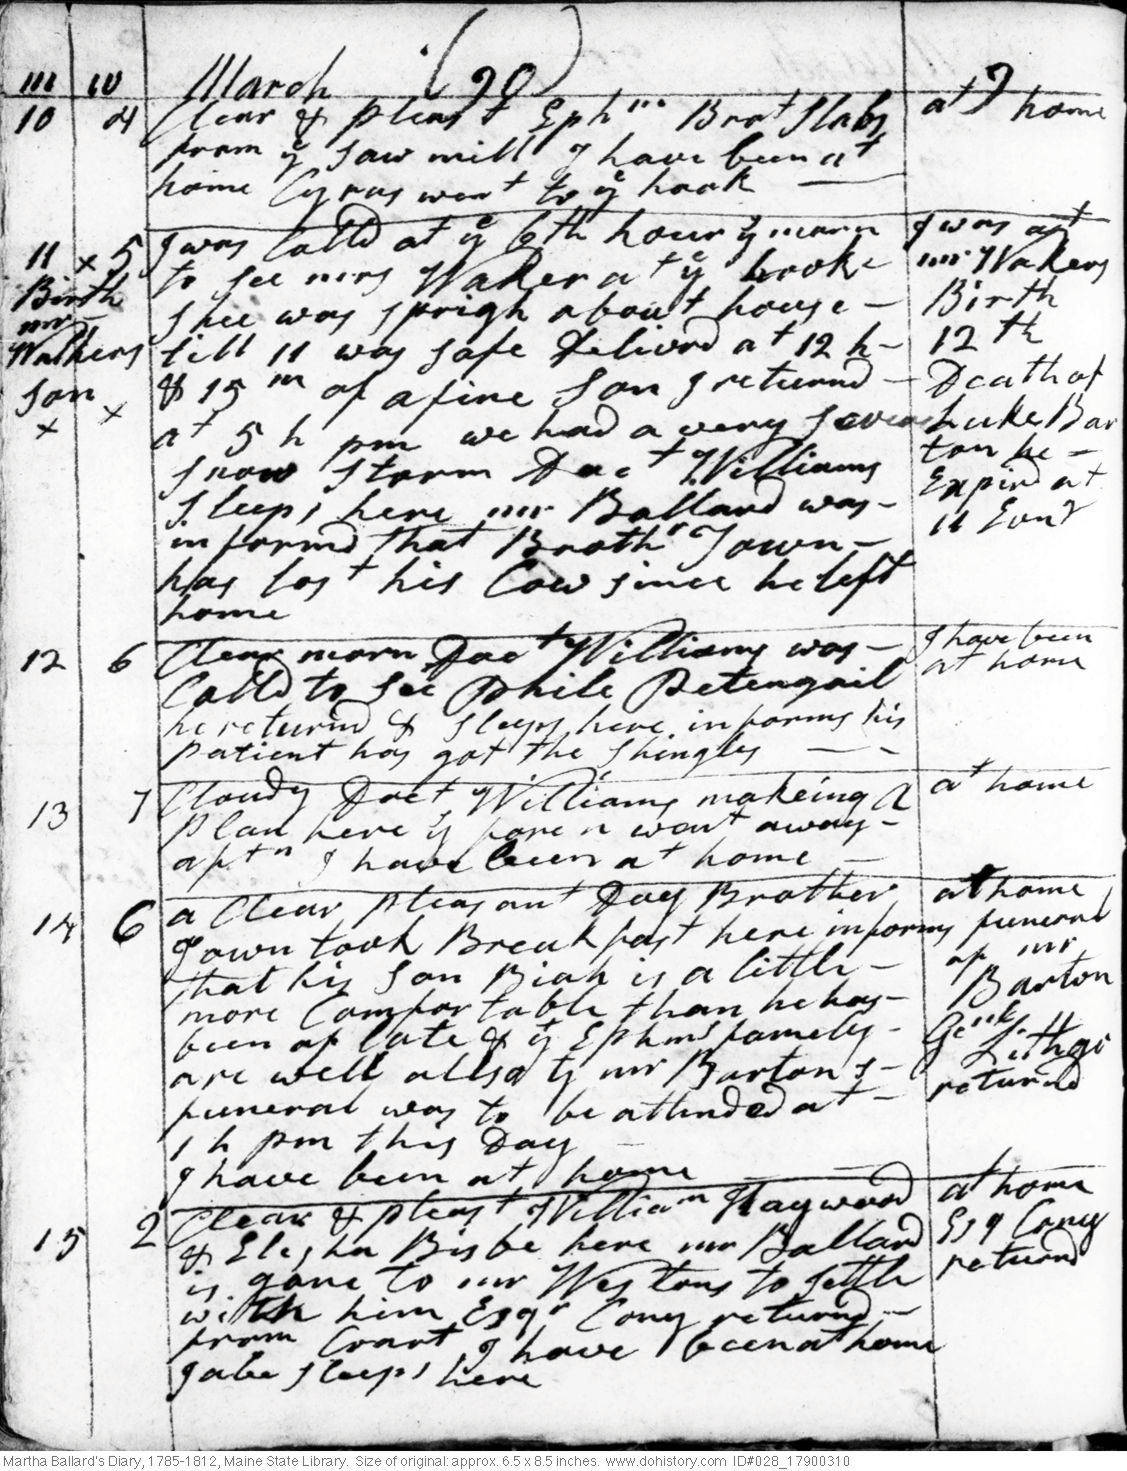 m w March (90)
10 4 Clear & pleast Ephm Brot Slabs at home
from ye saw mill I have been at
home Cyrus went to ye hook
11 x 5 I was Calld at ye 6th hour ys morn I was at
Birth to see mrs Walker at ye hook mr Walkers
mr shee was sprigh about house - Birth
Walkers till 11 was safe Delivrd at 12 h - 12 th
son & 15 m of a fine Son I returnd - Death of
x x at 5 h pm we had a very severe Luke Bar
snow storm Doct Williams ton he -
sleeps here mr Ballard was - Expird at
informd that Brothr Town - 11 Evng
has lost his Cow since he left
home
12 6 Clear morn Doct Williams was - I have been
Calld to see Phile Petengail at home
he returnd & sleeps here informs his
patient has got the shingles
13 7 Cloudy Doct Williams makeing a at home
Plan here ys foren went away -
aftn I have been at home -
14 6 a Clear pleasant Day Brother at home
Town took Breakfast here informs funeral
that his son Biah is a little - of mr
more Comfortable than he has - Barton
been of late & ye Ephms famely - Lithgo
are well allso ty mr Bartons - returnd
funeral was to be attended at -
1 h pm this Day
I have been at home
15 2 Clear & pleast William Haywood at home
& Elisha Bisbe here mr Ballard Esq Cony
is gone to mr Westons to settle returnd
with him Esqr Cony returnd -
from Coart I have been at home
Gabe sleeps here
Martha Ballard's Diary, 1785-1812, Maine State Library. Size of original: approx. 6.5 x 8.5 inches. www.dohistory.com ID#028_17900310